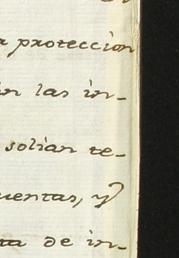 proteccion
in las in-
solian te-
uentas, y
ta de in-